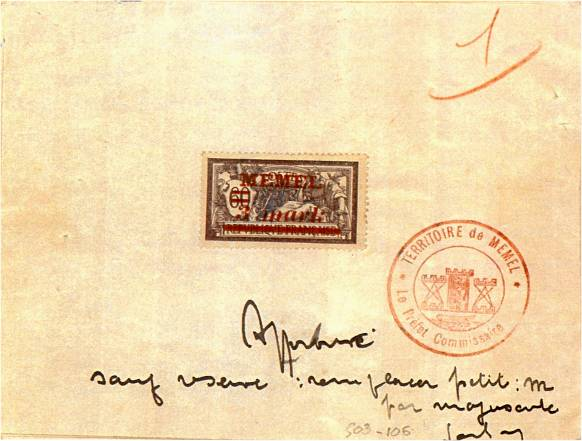 1
MEMEL
60
3 mark
REPUBLIQUE FRANÇAISE
* TERRITOIRE de MEMEL *
Le Préfet Commissaire
Approuvé
sauf réserve : remplacer petit : m
par majuscule
503-105